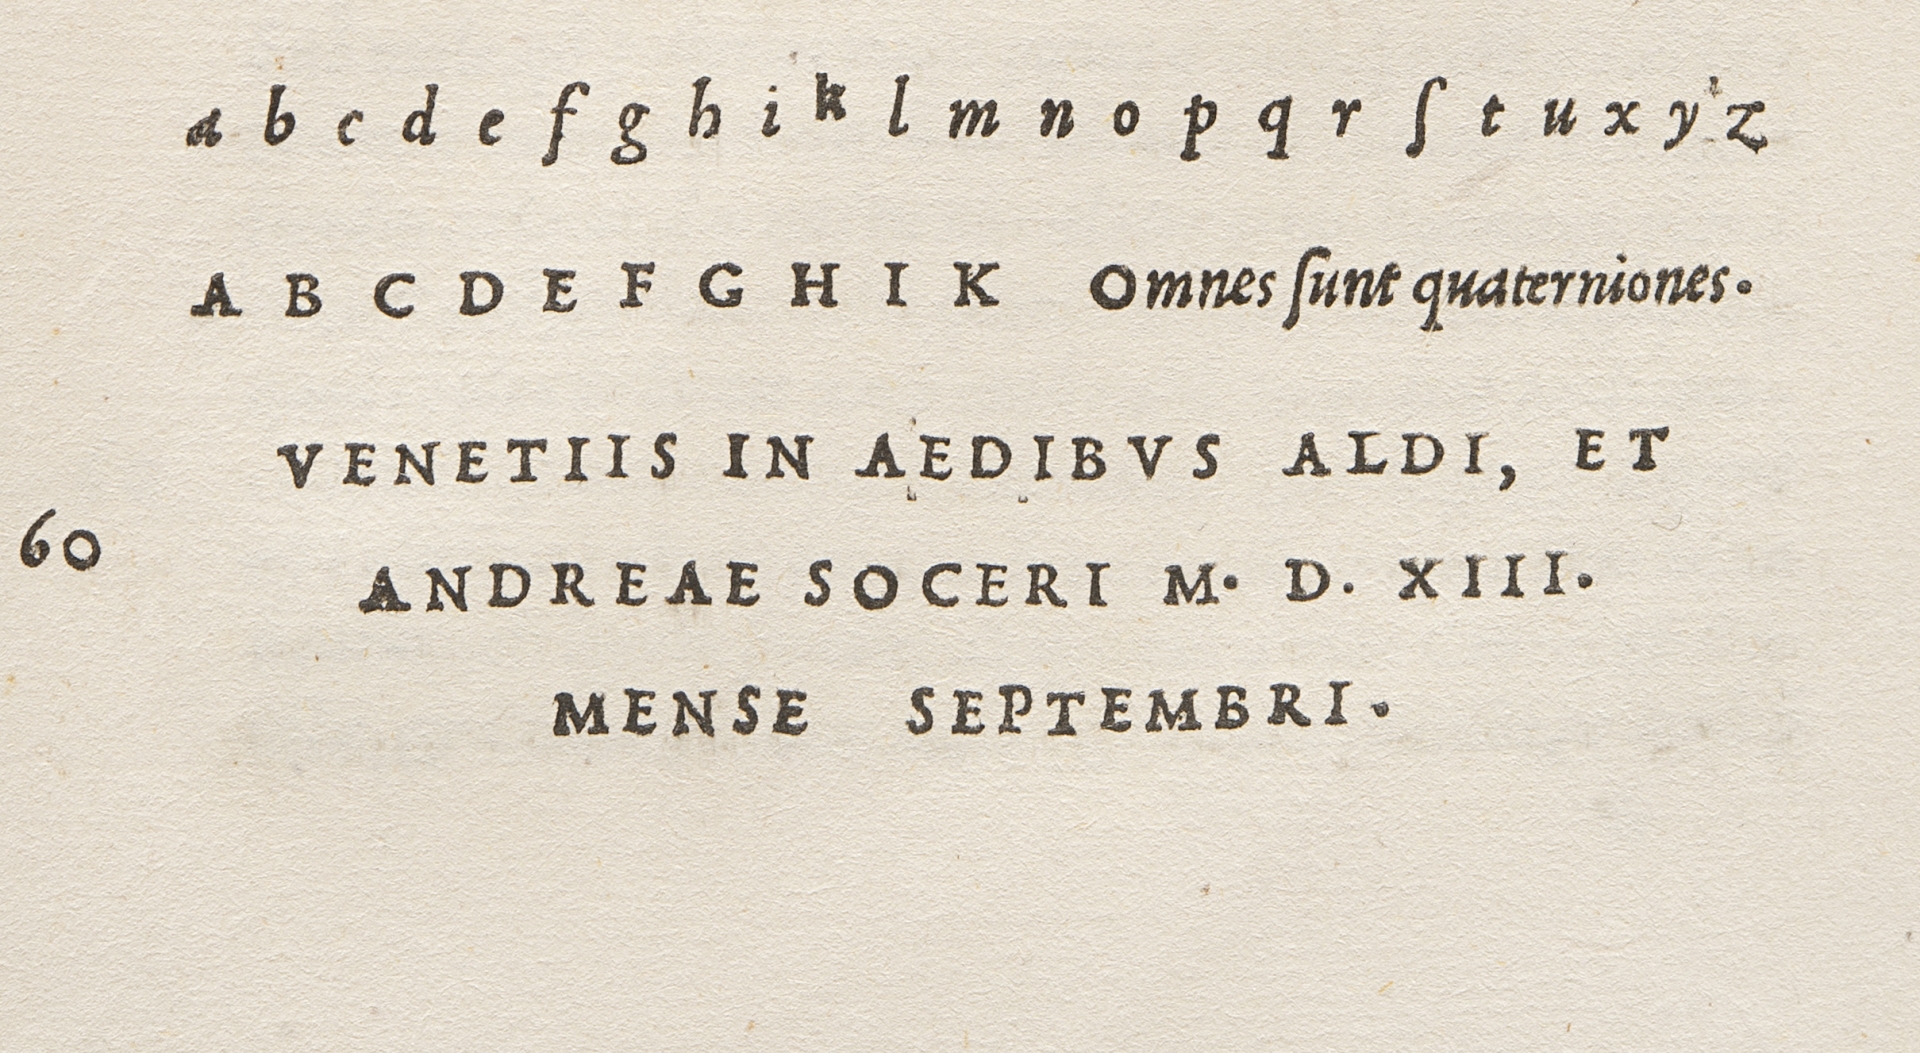 a b c d e f g h i k l m n o p q r ſ t u x y z
A B C D E F G H I K Omnes ſunt quaterniones.
VENETIIS IN AEDIBVS ALDI, ET
60
ANDREAE SOCERI M. D. XIII.
MENSE SEPTEMBRI.